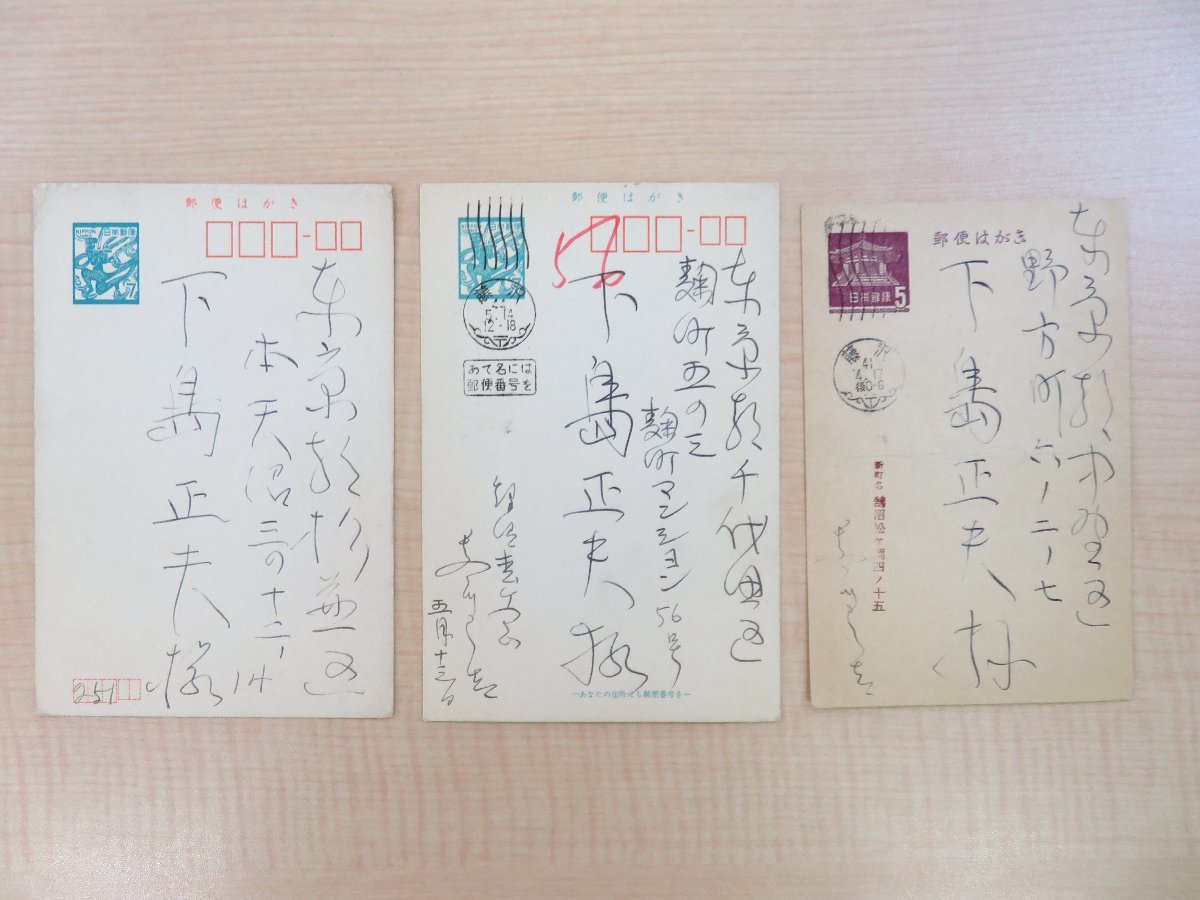 郵便はがき
NIPPON 日本郵便
7
東京都杉並区
本天沼三の十二ノ14
下島正夫様
251
郵便はがき
56
東京都千代田区
麹町五の三
麹町マンション56号
下島正夫様
5.14
12-18
あて名には
郵便番号を
五月十三日
―あなたの住所にも郵便番号を―
郵便はがき
日本郵便 5
東京都中野区
野方町六ノ二ノ七
下島正夫様
藤沢
41
4.17
後0-6
新町名 鵠沼松ヶ岡四ノ十五